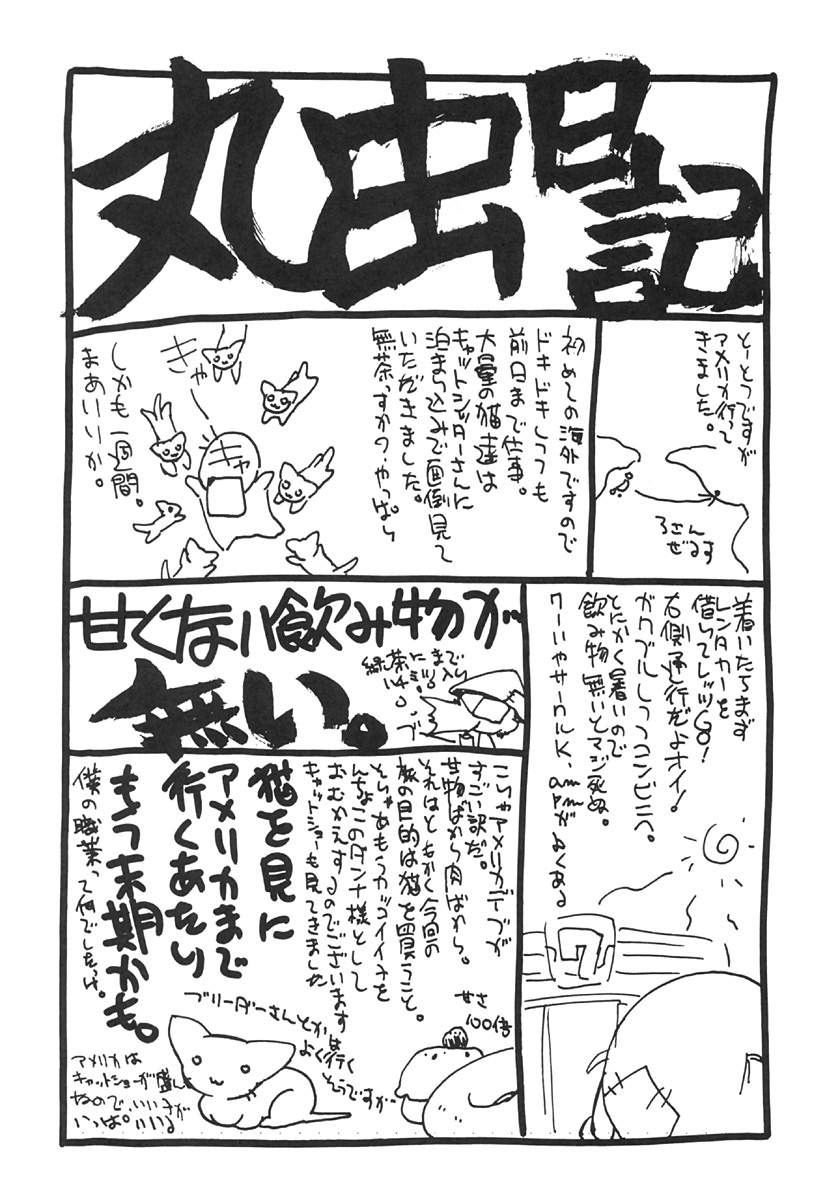 丸虫日記
とーとつですが
アメリカ行って
きました。
ろさん
ぜるす
初めての海外ですので
ドキドキしつつも
前日まで仕事。
大量の猫達は
キャットシッターさんに
泊まり込みで面倒見て
いただきました。
無茶っすかね、やっぱり
きゃー
キャ
しかも一週間。
まあいいか。
着いたらまず
レンタカーを
借りてレッツGO!
右側通行だよオイ!
ガクブルしつつコンビニへ。
とにかく暑いので
飲み物無いとマジ死ぬ。
ワーいやサークルK、am
pmがよくある
7
甘くない飲み物が
無い。
緑茶にまで
入り
こりゃアメリカデブが
すごい訳だ。
甘物ばかり肉ばかり。
それはともかく今回の
旅の目的は猫を買うこと。
そりゃあもうカッコイイ子を
んちょこのダンナ様として
おむかえするのでございます
キャットショーも見てきました
甘さ
100倍
猫を見に
アメリカまで
行くあたり
もう末期かも。
僕の職業って何でしたっけ。
ブリーダーさんとかは
よく行く
そうですが
アメリカは
キャットショーが盛ん
なので、いい子が
いっぱいいる